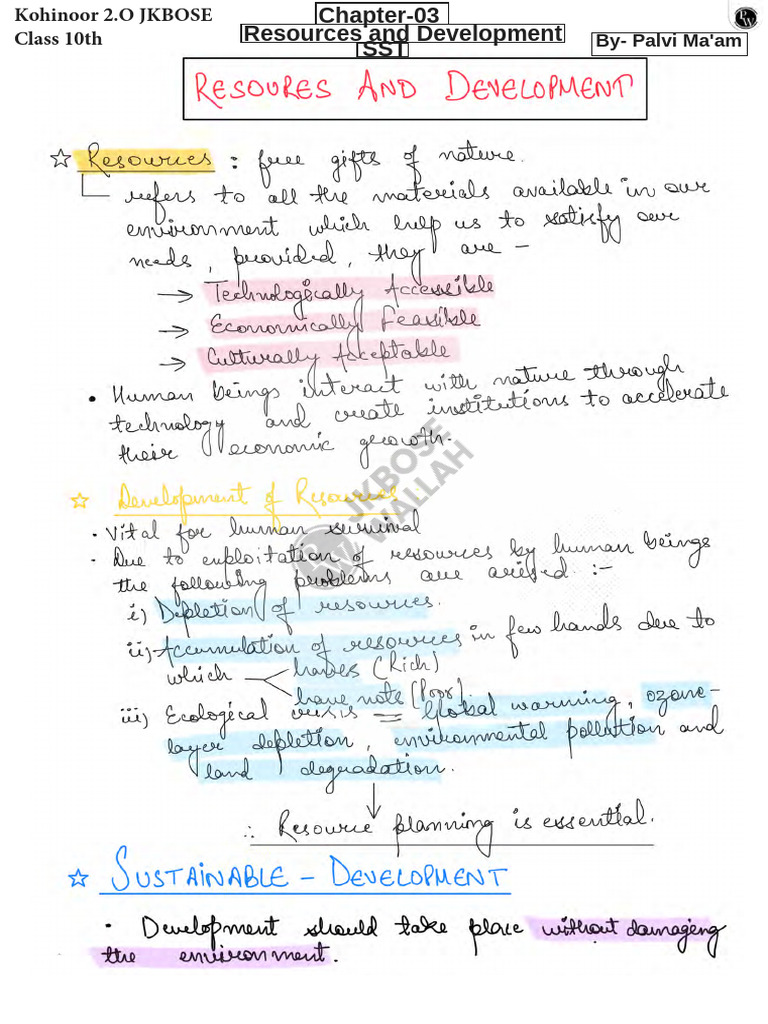 Kohinoor 2.O JKBOSE
Class 10th
Chapter-03
Resources and Development
SST
By- Palvi Ma'am
RESOURES AND DEVELOPMENT
☆ Resources : free gifts of nature.
refers to all the materials available in our
environment which help us to satisfy our
needs, provided, they are –
→ Technologically Accessible
→ Economically Feasible
→ Culturally Acceptable
• Human beings interact with nature through
technology and create institutions to accelerate
their economic growth.
☆ Development of Resources
• Vital for human survival
• Due to exploitation of resources by human beings
the following problems are arised :-
i) Depletion of resources.
ii) Accumulation of resources in few hands due to
which haves (Rich)
have nots (Poor).
iii) Ecological crisis = Global warming, ozone-
layer depletion, environmental pollution and
land degradation.
↓
∴ Resource planning is essential.
☆ SUSTAINABLE – DEVELOPMENT
• Development should take place without damageng
the environment.
JKBOSE
WALLAH